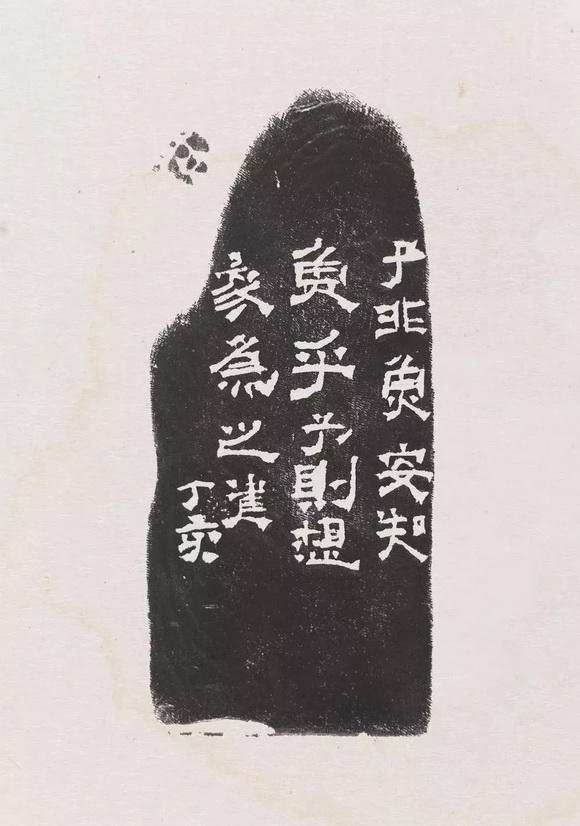 子非魚安知
魚乎予則想
象為之
丁亥